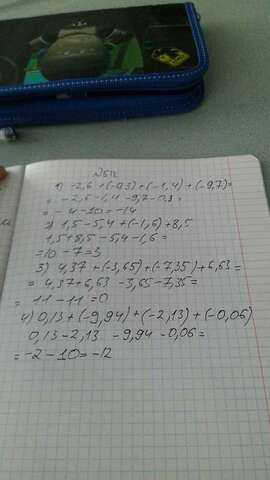 1) -2,6 + (-0,3) + (-1,4) + (-9,7)=
= -2,6 -1,4 -9,7 -0,3=
= -4 -10 = -14
2) 1,5 -5,4 + (-1,6) + 8,5
1,5 + 8,5 - 5,4 - 1,6 =
=10 - 7 = 3
3) 4,37 + (-3,65) + (-7,35) + 6,63 =
= 4,37 + 6,63 - 3,65 - 7,35=
= 11 - 11 = 0
4) 0,13 + (-9,94) + (-2,13) + (-0,06)
0,13 - 2,13 - 9,94 - 0,06 =
= -2 - 10 = -12